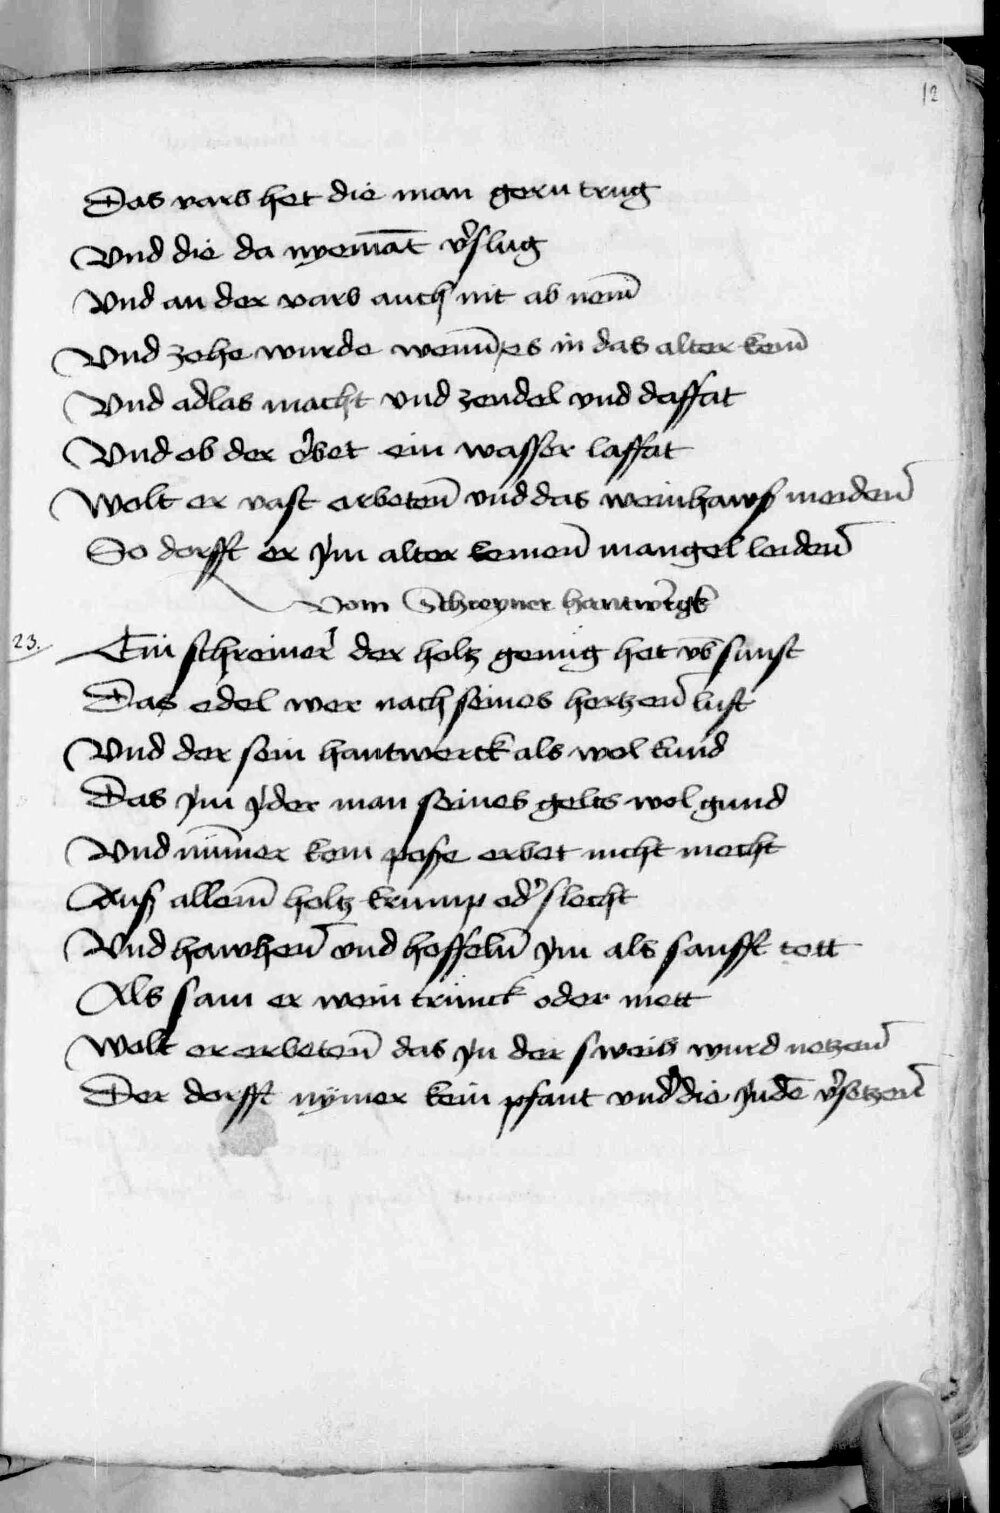 12
Das varb het die man gern trug
Vnd die da nyemāt v̓slug
Vnd an der varb auch nit ab nem̄
Vnd zehe wurde wenn̄ es in das alter kem̄
Vnd adlas macht vnd zendel vnd daffat
Vnd ob der erbet ein wasser laffat
Wolt er vast erbeten̄ vnd das weinhawß meiden̄
So dorfft er ym alter keinen̄ mangel leiden̄
Vom Schreyner hantw̓rgk
23. Ein schreiner der holtz genug het vb̄ sunst
Das edel wer nach seines hertzen̄ lust
Vnd der sein hantwerck als wol kund
Das ym yder man seines gelts wol gund
Vnd nūmer kein poße erbet nicht mecht
Auß allem̄ holtz krump od̓ slecht
Vnd hawhen̄ vnd hoffeln̄ ym als sanfft tett
Als sam er wein trünck oder mett
Wolt er erbeten̄ das yn der sweiß wurd netzen̄
Der dorfft nymer kein pfant vnd̓ die Judē v̓setzen̄